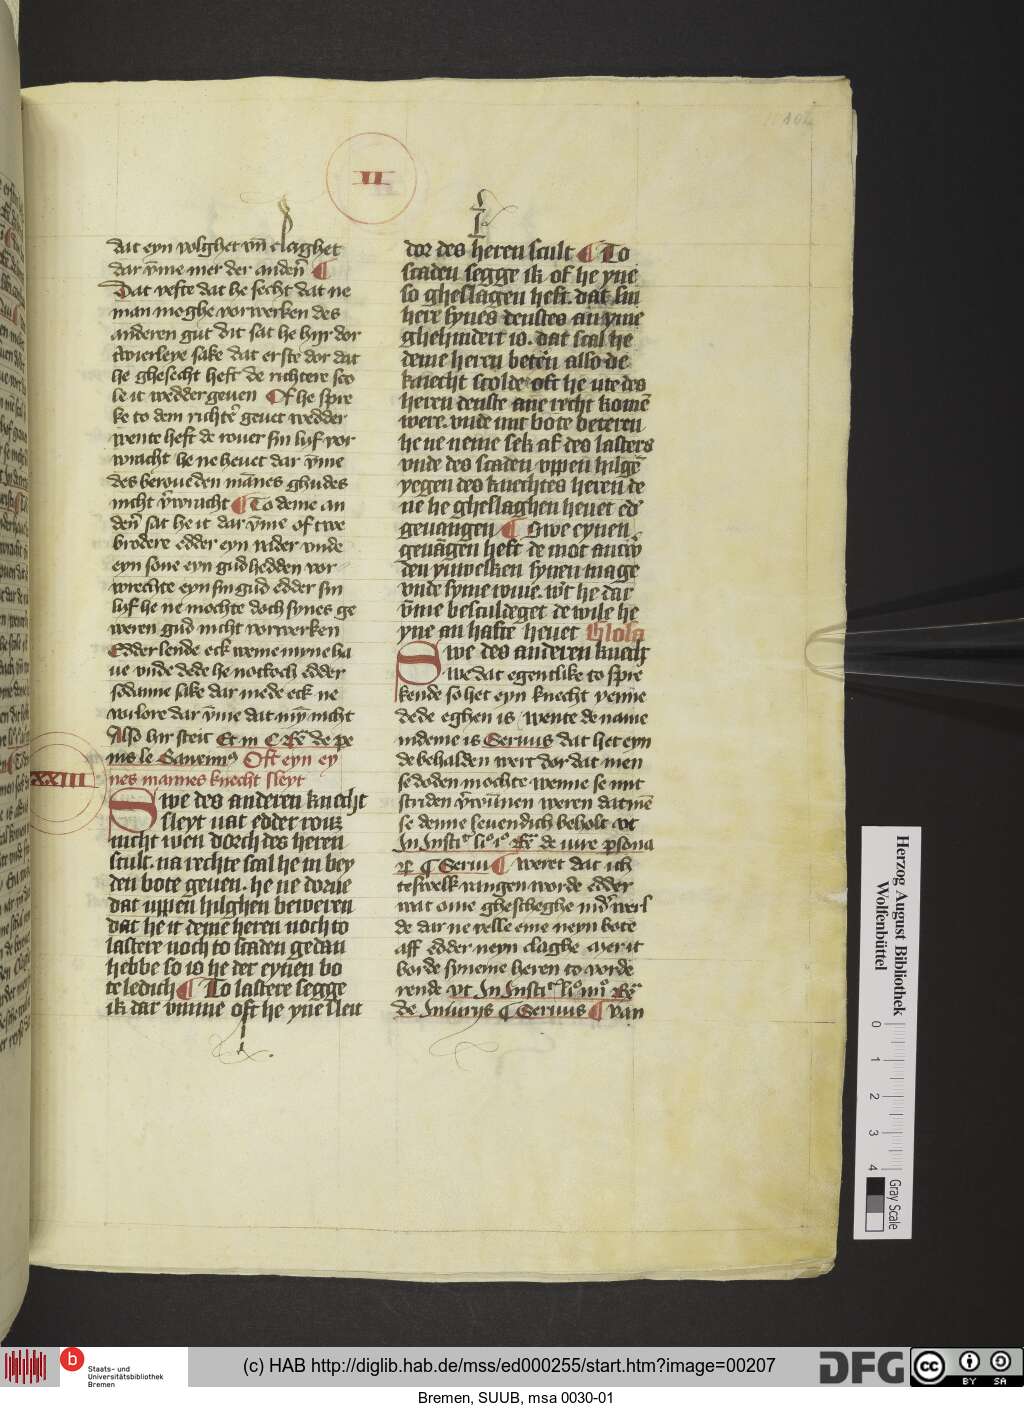 II
dat eyn volghet vn̄ claghet
dar v̄me mer der andern̄ ¶
Dat vefte dat he secht dat ne
man moghe vorwerken des
anderen gut dit sat he hyr dor
twierleye sake dat erste dor dat
he ghesecht heft de richtere sco
le it wedder geuen Of he spre
ke to dem richter̄ geuet wedder
wente heft de rouer sin luf vor
wracht he ne heuet dar v̄me
des beroueden mānes ghudes
nicht v̄wracht ¶ To deme an
den̄ sat he it dar v̄me of twe
brodere edder eyn vader vnde
eyn sone eyn gud hedden vor
wrechte eyn sin gud edder sin
luf he ne mochte doch synes ge
weren gud nicht vorwerken
Edder lende eck weme myne ha
ue vnde dede he not
sodanne sake dar mede eck ne
vorlore dar v̄me dat myn̄ nicht
Also hir steit Et in de pe
nis le Sancim⁹ Oft eyn ey
nes mannes knecht sleyt
XXIII
Swe des anderen knecht
sleyt vat edder rouᵉ
nicht wen dorch des heren
scult. na rechte scal he in bey
den bote geuen. he ne dorue
dat uppen hilghen beweren
dat he it deme heren noch to
lastere noch to scaden gedan
hebbe so is he der eynen bo
te ledich ¶ To lastere segge
ik dar vmme oft he yne sleit
dor des heren scult ¶ To
scaden segge ik of he yne
so gheslagen heft. dat sin
here synes denstes an yme
ghehindert is. dat scal he
deme heren beterē also de
knecht scolde oft he ute des
heren denste ane recht komē
were. vnde mit bote beteren
he ne neme sek af des lasters
vnde des scaden vppen hilgē
yegen des knechtes heren de
ne he gheslaghen heuet ed̄
geuangen ¶ Swe eynen
geuāgen heft de mot antw̄
den ynwelken synen mage
vnde syme wiue. wt he dar
v̄me besculdeget de wile he
yne an hafte heuet Glosa
Swe des anderen knech
t we dat egentlike to spre
kende so het eyn knecht yenne
de de eghen is wente de name
indeme is Seruus dat het eyn
de behalden wert dor dat men
se doden mochte wenne se mit
striden v̄wūnen weren dat mē
se denne leuendich beholt vt
In Insti de iure psona
¶ Serui ¶ weret dat ich
teswelk vingen worde edder
wat ome ghescheghe
de dar ne velle eme neyn bote
aff edder neyn claghe auer it
borde syneme heren to vorde
rende vt In Insti
de Iniurijs ¶ Seruus ¶ Van
Herzog August Bibliothek
Wolfenbüttel
0 1 2 3 4
Gray Scale
b
Staats- und
Universitätsbibliothek
Bremen
(c) HAB http://diglib.hab.de/mss/ed000255/start.htm?image=00207
DFG
cc BY SA
Bremen, SUUB, msa 0030-01